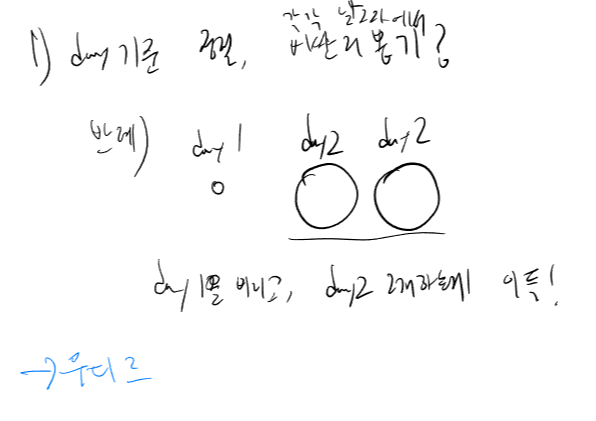 각각 날짜에서
1) day 기준 정렬, 비싼거 뽑기?
반례) day 1 day2 day2
day 1을 버리고, day2 2개하는게 이득!
→ 우티르